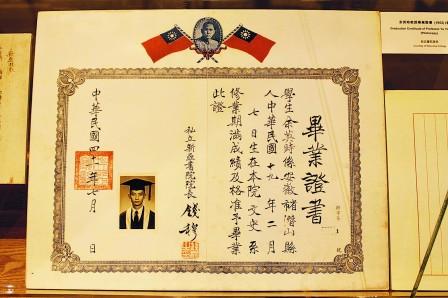 畢業證書
學生余英時係安徽省潛山縣
人中華民國十九年二月
七日生在本院文史系
修業期滿成績及格准予畢業
此證
私立新亞書院院長 錢穆
中華民國四十一年七月 日
余英時教授畢業證書 (1952)
Graduation Certificate of Professor Yu
(Photocopy)